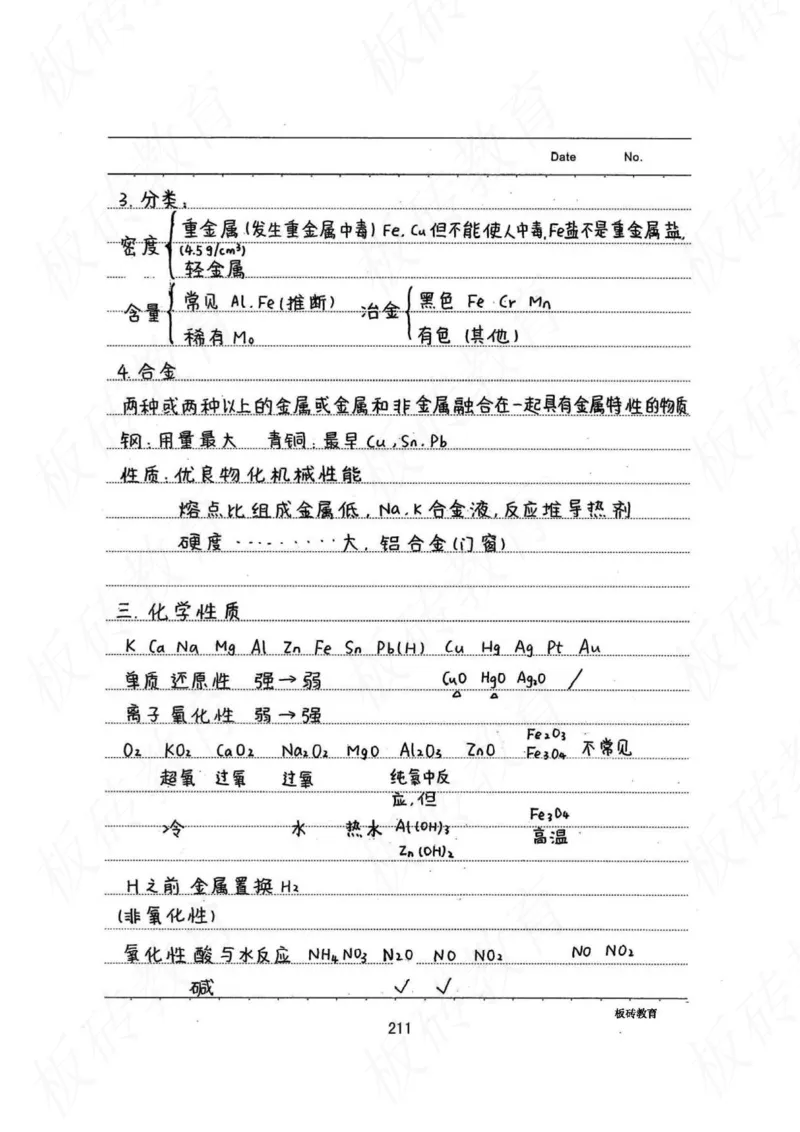 Date No.
3. 分类:
密度 重金属(发生重金属中毒) Fe. Cu 但不能使人中毒, Fe盐不是重金属盐,
(4.5g/cm³)
轻金属
含量 常见 Al. Fe(推断) 冶金 黑色 Fe Cr Mn
稀有 Mo 有色 (其他)
4. 合金
两种或两种以上的金属或金属和非金属融合在一起具有金属特性的物质
钢:用量最大 青铜:最早 Cu, Sn. Pb
性质:优良物化机械性能
熔点比组成金属低, Na. K 合金液, 反应堆导热剂
硬度 ·········大, 铝合金(门窗)
三. 化学性质
K Ca Na Mg Al Zn Fe Sn Pb(H) Cu Hg Ag Pt Au
单质还原性 强→弱 CuO HgO Ag₂O /
△ △
离子氧化性 弱→强
O₂ KO₂ CaO₂ Na₂O₂ MgO Al₂O₃ ZnO Fe₂O₃ Fe₃O₄ 不常见
超氧 过氧 过氧 纯氧中反
应,但
冷 水 热水 Al(OH)₃ Fe₃O₄
Zn(OH)₂ 高温
H之前金属置换H₂
(非氧化性)
氧化性酸与水反应 NH₄NO₃ N₂O NO NO₂ NO NO₂
碱 ✓ ✓
板砖教育
211